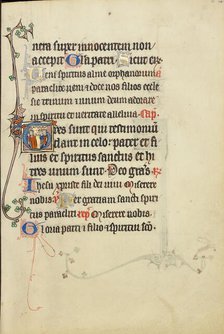 nera super innocentem non
accepit Gła patri Sicut er
Veni spiritus alme orphanorum
paraclite veni et doce nos filios eccle
sie trinum unum deum adorare
in spiritu et veritate alleluia Cap
Tres sunt qui testimonium
dant in celo pater et fi
lius et spiritus sanctus et hi
tres unum sunt Deo gras
Ihesu xpriste fili dei vivi Miserere
nobis Per gratiam sancti spiri
tus paracliti Miserere nobis
Gloria patri et filio et spiritui sco